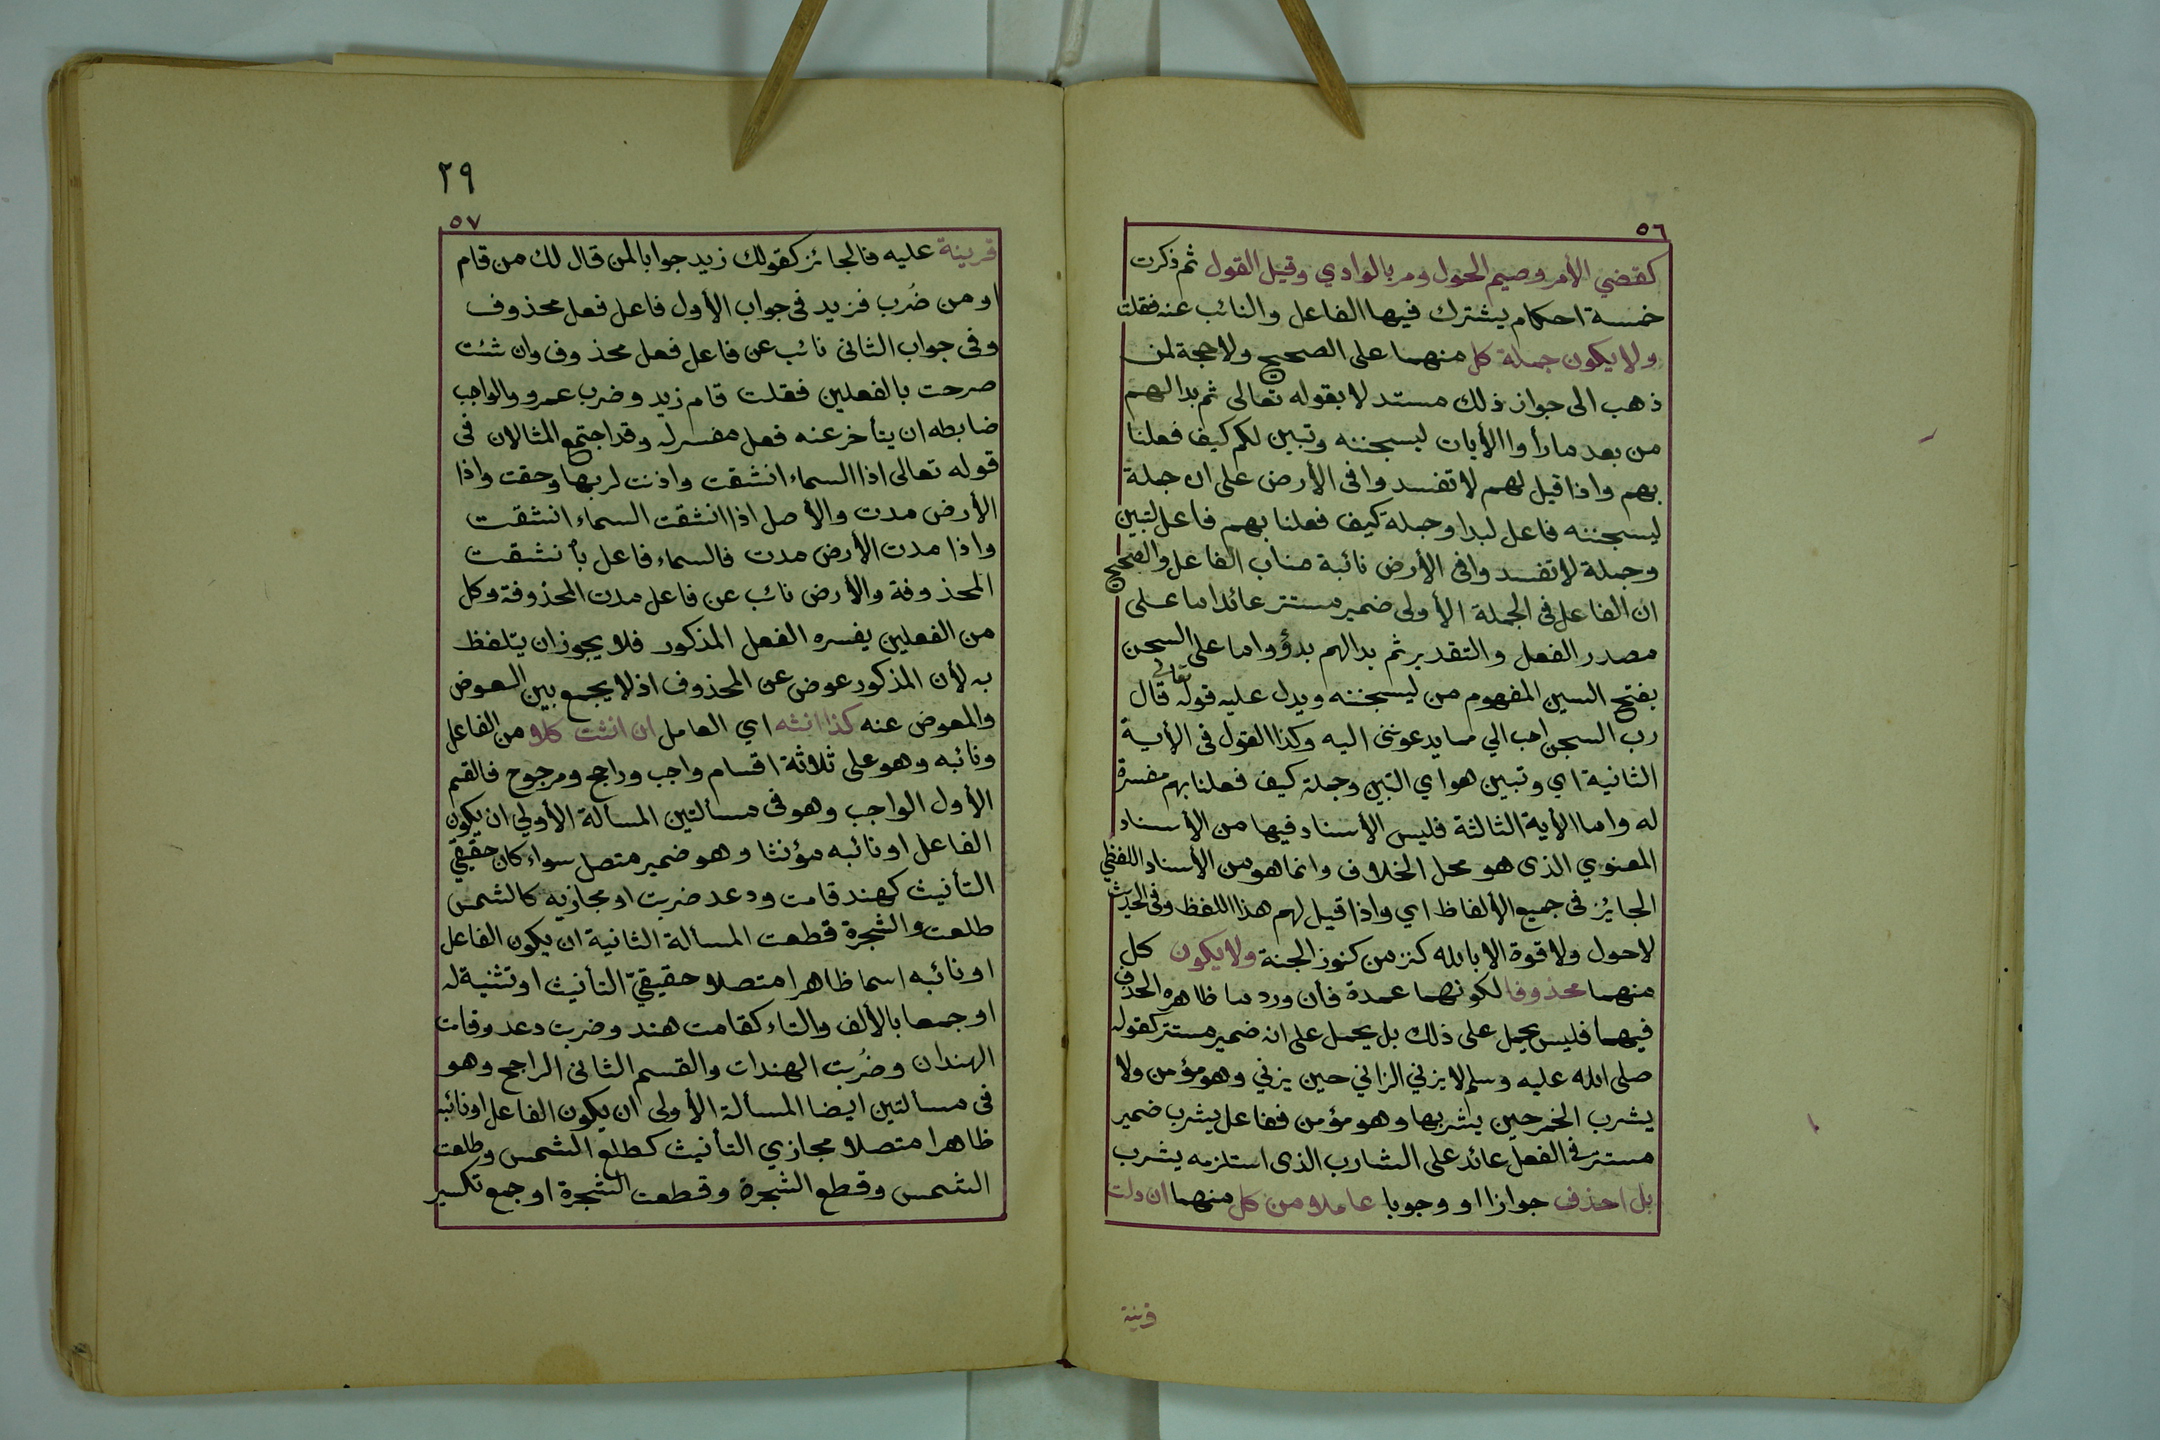 ٥٦
كقضي الأمر وصيم الحول ومر بالوادي وقيل القول ثم ذكرت
خمسة احكام يشترك فيها الفاعل والنائب عنه فقلت
ولا يكون جملة كل منهما على الصحيح ولا حجة لمن
ذهب الى جواز ذلك مستدلا بقوله تعالى ثم بدا لهم
من بعد ما رأوا الأيات ليسجننه وتبين لكم كيف فعلنا
بهم واذا قيل لهم لا تفسدوا فى الأرض على ان جملة
ليسجننه فاعل لبدا وجملة كيف فعلنا بهم فاعل لتبين
وجملة لا تفسدوا فى الأرض نائبة مناب الفاعل والصحيح
ان الفاعل فى الجملة الأولى ضمير مستتر عائد اما على
مصدر الفعل والتقدير ثم بدا لهم بدؤ واما على السجن
بفتح السين المفهوم من ليسجننه ويدل عليه قوله تعالى قال
رب السجن احب الي مما يدعوننى اليه وكذا القول فى الأية
الثانية اي وتبين هو اي التبين وجملة كيف فعلنا بهم مفسرة
له واما الأية الثالثة فليس الأسناد فيها من الأسناد
المعنوي الذى هو محل الخلاف وانما هو من الأسناد اللفظي
الجايز فى جميع الألفاظ اي واذا قيل لهم هذا اللفظ وفى الحديث
لا حول ولا قوة الا بالله كنز من كنوز الجنة ولا يكون كل
منهما محذوفا لكونهما عمدة فأن ورد ما ظاهره الحذف
فيهما فليس يحمل على ذلك بل يحمل على انه ضمير مستتر كقوله
صلى الله عليه وسلم لا يزني الزاني حين يزني وهو مؤمن ولا
يشرب الخمر حين يشربها وهو مؤمن ففاعل يشرب ضمير
مستتر فى الفعل عائد على الشارب الذى استلزمه يشرب
بل احذف جوازا او وجوبا عاملا من كل منهما ان دلت
قرينة
٢٩
٥٧
قرينة عليه فالجائز كقولك زيد جوابا لمن قال لك من قام
او من ضُرب فزيد فى جواب الأول فاعل فعل محذوف
وفى جواب الثانى نائب عن فاعل فعل محذوف وان شئت
صرحت بالفعلين فقلت قام زيد وضرب عمرو والواجب
ضابطه ان يتأخر عنه فعل مفسر له وقد اجتمع المثالان فى
قوله تعالى اذا السماء انشقت واذنت لربها وحقت واذا
الأرض مدت والأصل اذا انشقت السماء انشقت
واذا مدت الأرض مدت فالسماء فاعل بأنشقت
المحذوفة والأرض نائب عن فاعل مدت المحذوفة وكل
من الفعلين يفسره الفعل المذكور فلا يجوز ان يتلفظ
به لأن المذكور عوض عن المحذوف اذ لا يجمع بين العوض
والمعوض عنه كذا انثه اي العامل ان انثت كلا من الفاعل
ونائبه وهو على ثلاثة اقسام واجب وراجح ومرجوح فالقسم
الأول الواجب وهو فى مسألتين المسألة الأولي ان يكون
الفاعل او نائبه مؤنثا وهو ضمير متصل سواء كان حقيقي
التأنيث كهند قامت ودعد ضربت او مجازيه كالشمس
طلعت والشجرة قطعت المسألة الثانية ان يكون الفاعل
او نائبه اسما ظاهرا متصلا حقيقيّ التأنيث او تثنية له
او جمعا بالألف والتاء كقامت هند وضربت دعد وقامت
الهندان وضُربت الهندات والقسم الثانى الراجح وهو
فى مسالتين ايضا المسألة الأولى ان يكون الفاعل او نائبه
ظاهرا متصلا مجازي التأنيث كطلع الشمس وطلعت
الشمس وقطع الشجرة وقطعت الشجرة او جمع تكسير